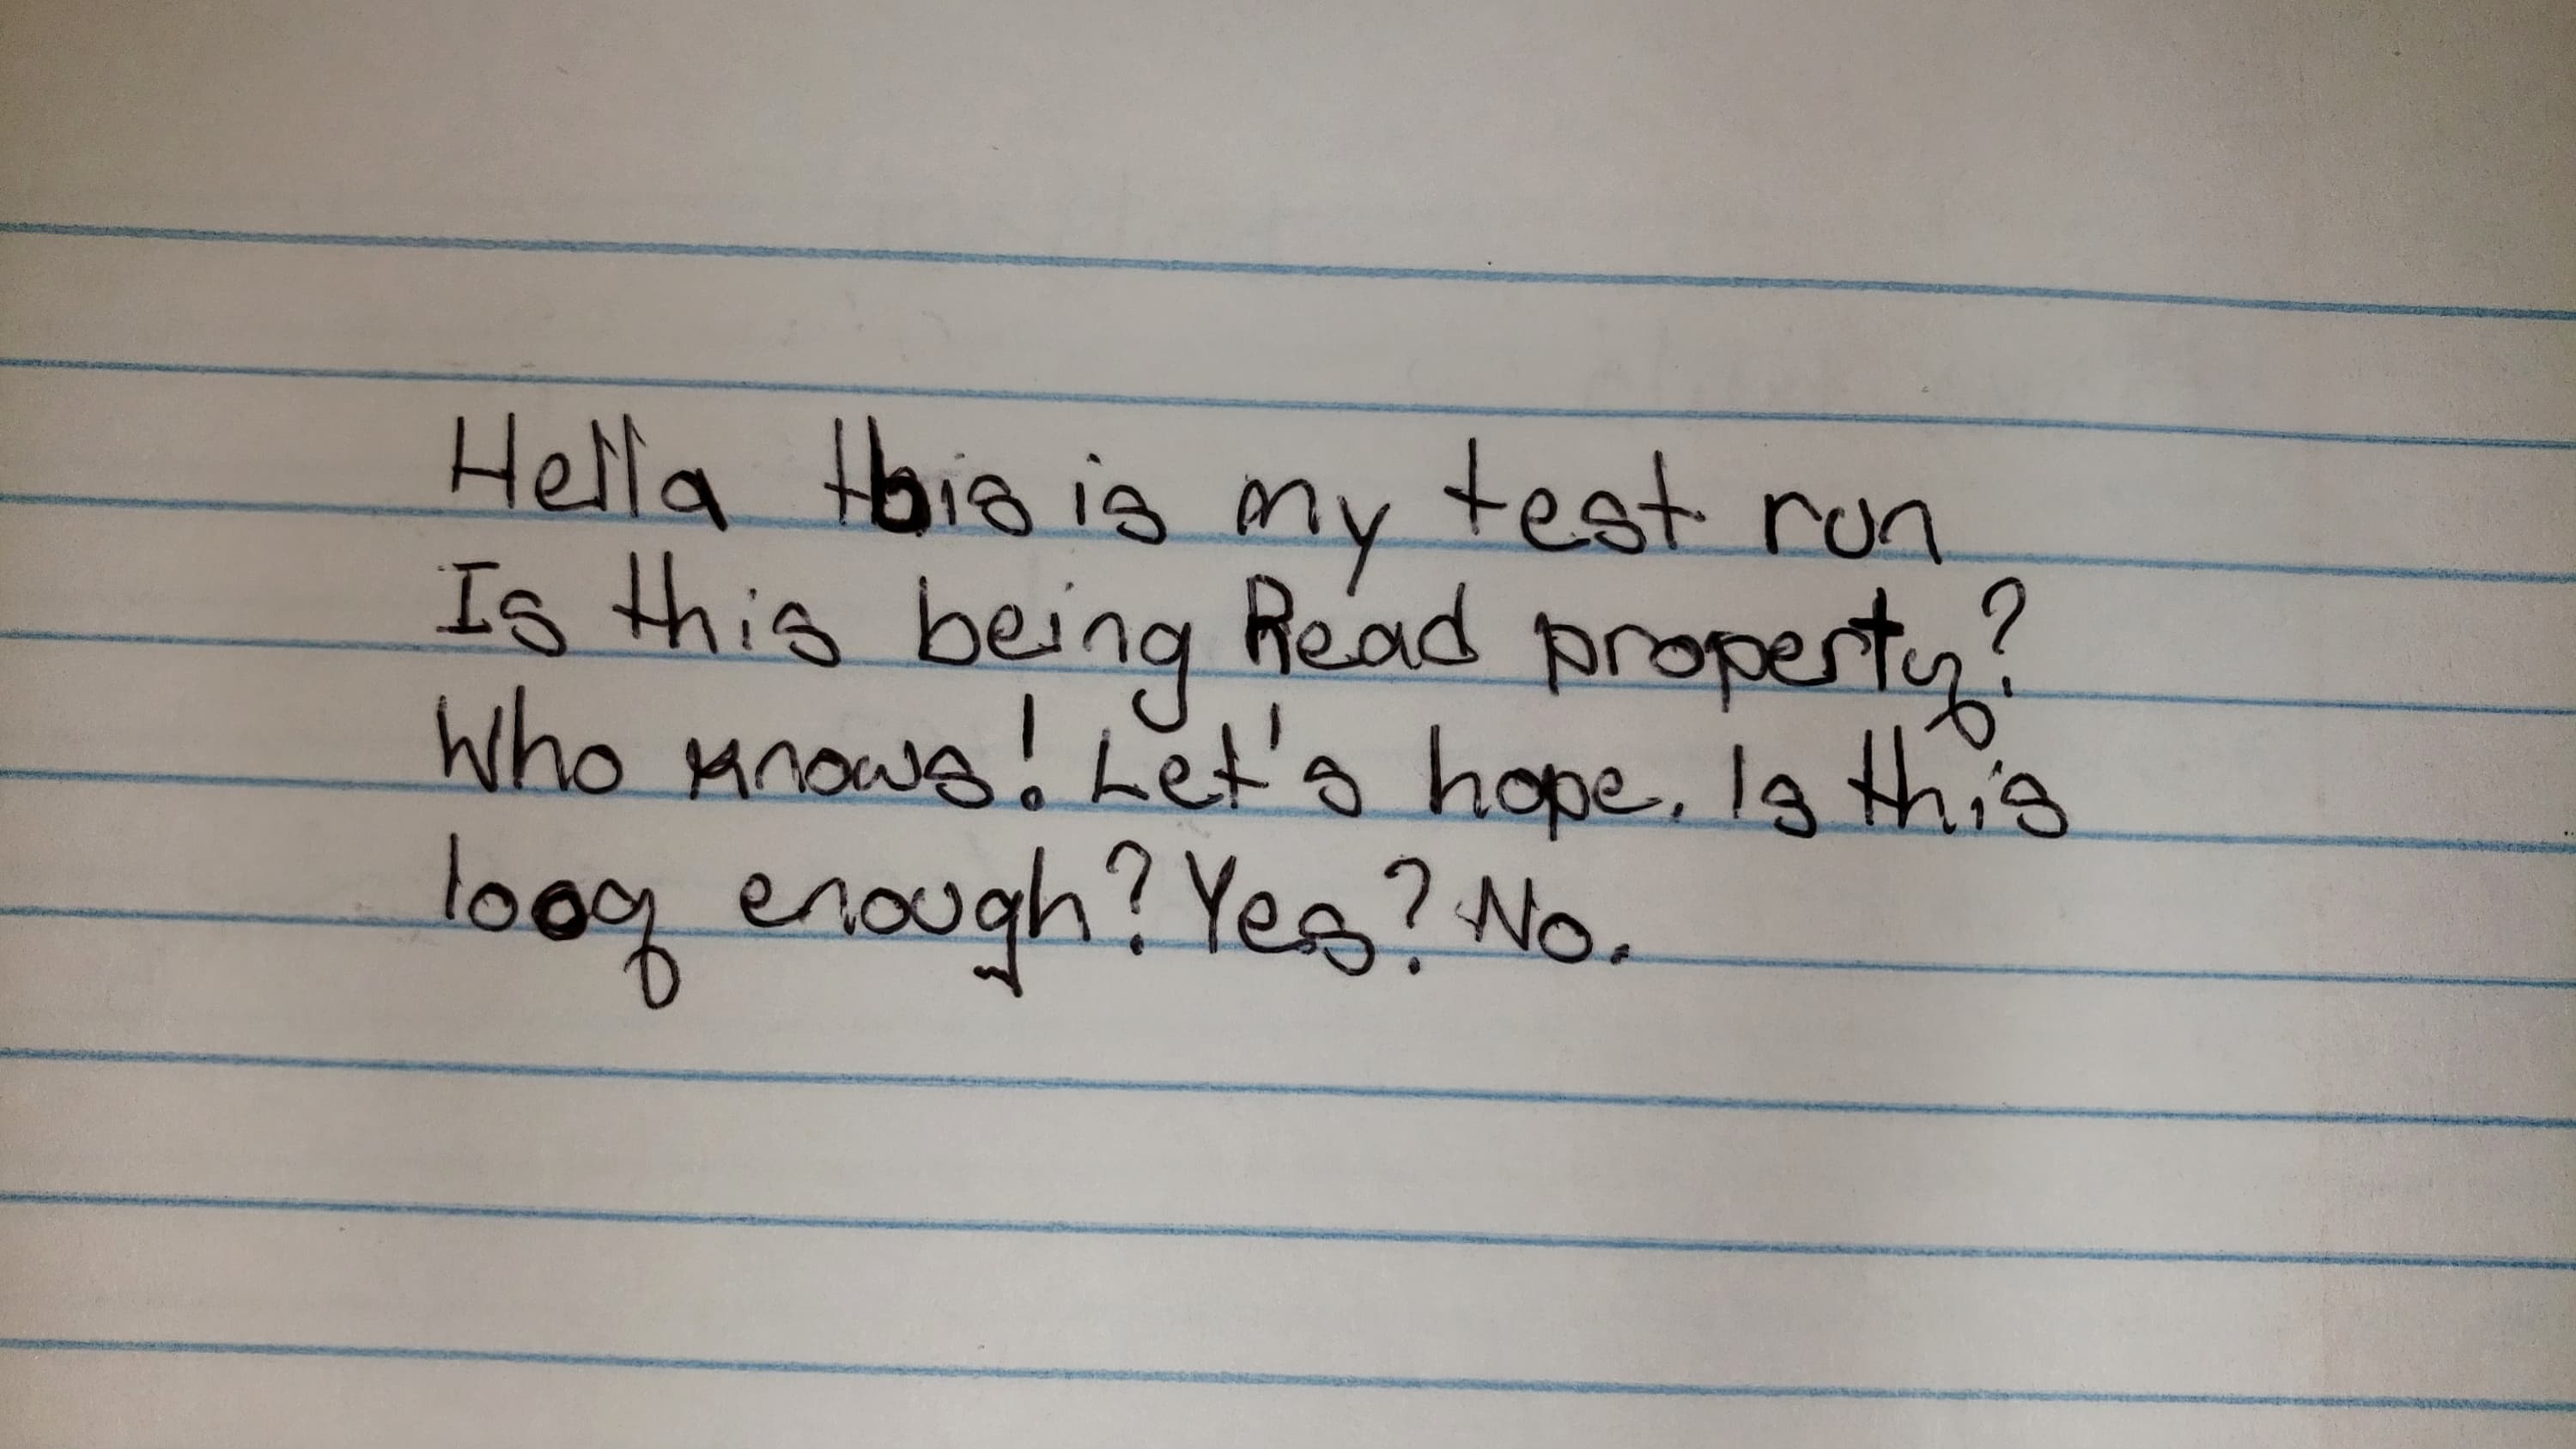 Hella this is my test run
Is this being Read property?
Who knows! Let's hope. Is this
loog enough? Yes? No.